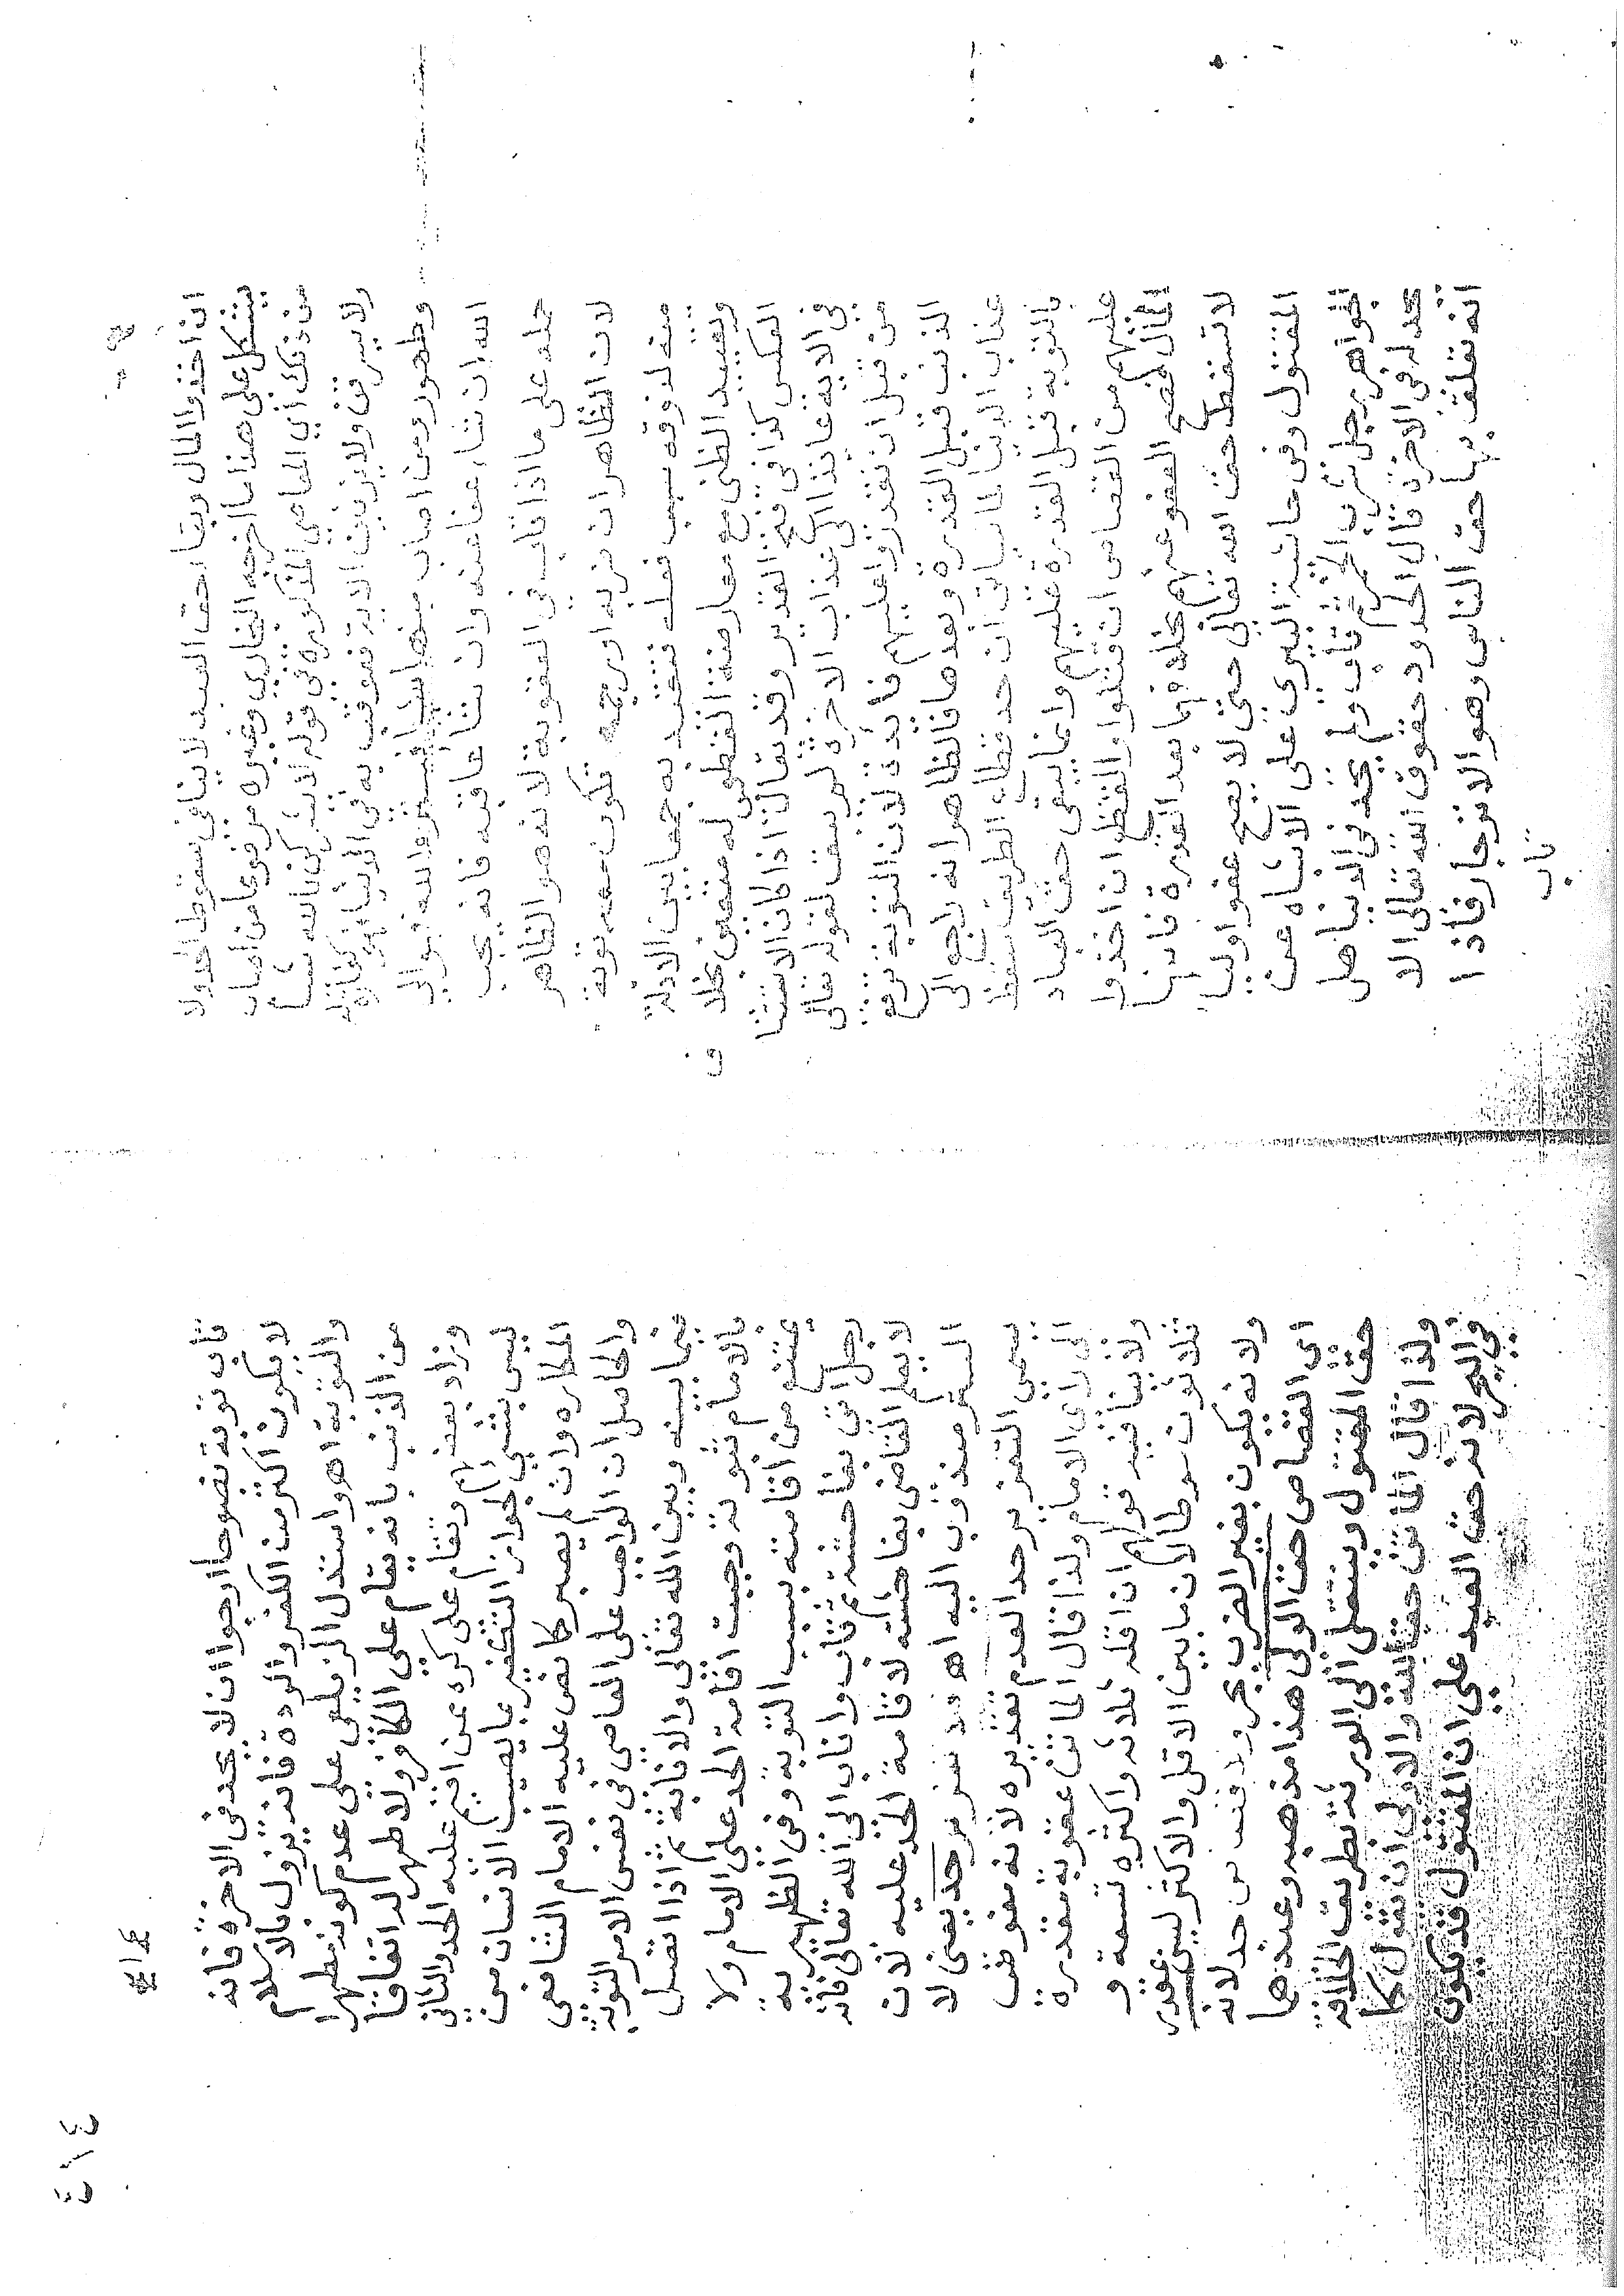 ان اخذوا المال وبقا حق العبد لا ينافي سقوط الحد ولا
يشكل على هذا ما اخرجه البخاري وغيره مرفوعا من اصاب
من ذلك اي المعاصي المذكورة في قوله لا تشركن بالله شيا
ولا يسرقن ولا يزنين الاية فعوقب به في الدنيا فهو كفارة
وطهور ومن اصاب منها شيا فستره الله فهو الى
الله ان شاء عفا عنه وان شا عاقبه فانه يجب
حمله على ما اذا تاب في العقوبة لانه هو الظاهر
لان الظاهر ان ضربه او رجمه تكون معه توبة
منه لذوقه سبب فعله فتقيد به جمعا بين الادلة
وتقييد الظني مع معارضة القطعي له متعين بخلاف
العكس كذا في فتح القدير وقد يقال اذا كان الاستثنا
في الاية عايدا الى عذاب الاخرة لم يبق لقوله تعالى
من قبل ان تقدروا عليهم فايدة لان التوبة ترفع
الذنب قبل القدرة وبعدها فالظاهر انه راجع الى
عذاب الدنيا لما سياتي ان حد قطاع الطريق يسقط
بالتوبة قبل القدرة عليهم وانما يبقى حق العباد
عليهم من القصاص ان قتلوا والقطع ان اخذوا
المال فصح العفو عنهم بخلاف ما بعد القدرة فانها
لا تسقط حق الله تعالى حتى لا يصح عفو اوليا
المقتول وفي حاشية البيري على الاشباه عن
الجواهر رجل شرب الخمر ثم تاب ولم يحد في الدنيا هل
يحد له في الاخرة قال الحدود حقوق الله تعالى الا
انه تعلق بها حق الناس وهو الانزجار فاذا
تاب
تاب توبة نصوحا ارجوا ان لا يحد في الاخرة فانه
لا يكون اكثر من الكفر والردة فانه يزول بالاسلام
والتوبة اهـ واستدل الزيلعي على عدم كونه مطهرا
من الذنب بانه يقام على الكافر ولا طهر له اتفاقا
وزاد بعضهم ويقام على كره عن اقيم عليه الحد والثاني
ليس بشي لجواز التكفير بما يصيب الانسان من
المكاره وان لم يصبر كما نص عليه الامام الشافعي
والحاصل ان الواجب على العاصي في نفس الامر التوبة
فيما بينه وبين الله تعالى والانابة ثم اذا اتصل
بالامام ثبوته وجبت اقامة الحد على الامام ولا
يمتنع من اقامته بسبب التوبة وفي الظهيرية
رجل اتى بفاحشة ثم تاب واناب الى الله تعالى فانه
لا يعلم القاضي بفاحشته لاقامة الحد عليه لان
الستر مندوب اليه اهـ فلا تعزير حد يعني لا
يسمى التعزير حد العدم تقديره لانه مفوض
الى راي الامام ولذا قال الماتن عقوبة مقدرة
ولا ينافيه قولهم ان اقله ثلاثة واكثره تسعة و
ثلاثون سوطا لان ما بين الاقل والاكثر ليس بمقدر
ولانه يكون بغير الضرب بحر ولا قصاص حد لانه
اي القصاص حق الولي هذا مذهبه وعندهما
حق المقتول وينتقل الى الورثة بطريق الخلافة
ولذا قال الماتن حقا لله والاولى ان نقول كما
في البحر لانه حق العبد على ان المقتول قد يكون